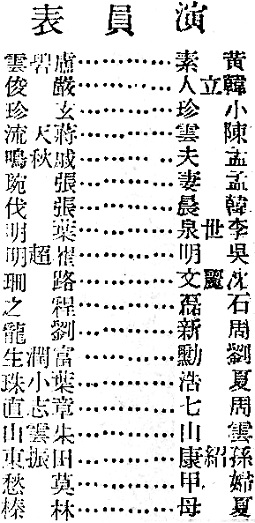 演員表
黃素……………盧碧雲
韓立人……………嚴俊
小珍……………玄珍
陳雲……………蔣天流
孟夫……………戚秋鳴
孟妻……………張琬
韓晨……………張伐
李世泉……………葉明
吳明……………崔超明
沈麗文……………路珊
石磊……………程之
周新……………劉龍
劉勳……………富潤生
夏浩……………葉小珠
周七……………章志直
雲山……………朱雲山
孫紹康……………田振東
婦甲……………莫愁
夏母……………林榛